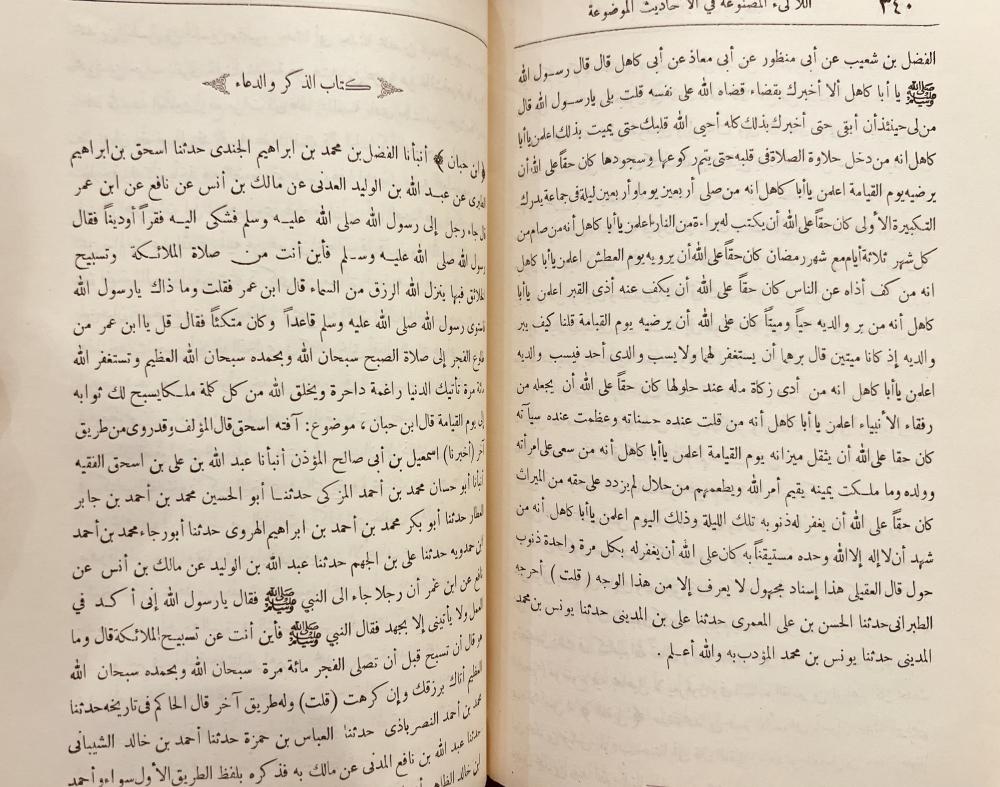 ٣٤٠
اللآلىء المصنوعة في الأحاديث الموضوعة
الفضل بن شعيب عن أبى منظور عن أبى معاذ عن أبى كاهل قال قال رسول الله
ﷺ يا أبا كاهل ألا أخبرك بقضاء قضاه الله على نفسه قلت بلى يارسول الله قال
من لى حينئذ أن أبقى حتى أخبرك بذلك كله أحيى الله قلبك حتى يميت بذلك اعلمن ياأبا
كاهل انه من دخل حلاوة الصلاة فى قلبه حتى يتم ركوعها وسجودها كان حقاً على الله أن
يرضيه يوم القيامة اعلمن ياأبا كاهل انه من صلى أربعين يوماوأربعين ليلة فى جماعة يدرك
التكبيرة الأولى كان حقاً على الله أن يكتب له براءة من النار اعلمن ياأبا كاهل أنه من صام من
كل شهر ثلاثة أيام مع شهر رمضان كان حقاً على الله أن يرويه يوم العطش اعلمن ياأبا كاهل
انه من كف أذاه عن الناس كان حقاً على الله أن يكف عنه أذى القبر اعلمن ياأبا
كاهل أنه من بر والديه حياً وميتاً كان على الله أن يرضيه يوم القيامة قلنا كيف يبر
والديه إذ كانا ميتين قال برهما أن يستغفر لهما ولايسب والدى أحد فيسب والديه
اعلمن ياأبا كاهل انه من أدى زكاة ماله عند حلولها كان حقاً على الله أن يجعله من
رفقاء الأنبياء اعلمن يا أبا كاهل أنه من قلت عنده حسناته وعظمت عنده سيآته
كان حقا على الله أن يثقل ميزانه يوم القيامة اعلمن ياأبا كاهل أنه من سعى على امرأته
وولده وما ملكت يمينه يقيم أمر الله ويطعمهم من حلال لم يزدد على حقه من الميراث
كان حقاً على الله أن يغفر له ذنوبه تلك الليلة وذلك اليوم اعلمن ياأبا كاهل أنه من
شهد أن لاإله إلا الله وحده مستيقناً به كان على الله أن يغفر له بكل مرة واحدة ذنوب
حول قال العقيلى هذا إسناد مجهول لا يعرف إلا من هذا الوجه ( قلت ) أخرجه
الطبرانى حدثنا الحسن بن على المعمرى حدثنا على بن المدينى حدثنا يونس بن محمد
المدينى حدثنا يونس بن محمد المؤدب به والله أعلم .
كتاب الذكر والدعاء
﴿ ابن حبان ﴾ أنبأنا الفضل بن محمد بن ابراهيم الجندى حدثنا اسحق بن ابراهيم
عن عبد الله بن الوليد العدنى عن مالك بن أنس عن نافع عن ابن عمر
قال جاء رجل إلى رسول الله صلى الله عليه وسلم فشكى اليه فقراً أوديناً فقال
رسول الله صلى الله عليه وسلم فأين أنت من صلاة الملائكة وتسبيح
الخلائق فبها ينزل الله الرزق من السماء قال ابن عمر فقلت وما ذاك يارسول الله
فاستوى رسول الله صلى الله عليه وسلم قاعداً وكان متكئاً فقال قل ياابن عمر من
طلوع الفجر إلى صلاة الصبح سبحان الله وبحمده سبحان الله العظيم وتستغفر الله
مائة مرة تأتيك الدنيا راغمة داخرة ويخلق الله من كل كلمة ملكايسبح لك ثوابه
إلى يوم القيامة قال ابن حبان ، موضوع : آفته اسحق قال المؤلف وقدروى من طريق
آخر (أخبرنا) اسمعيل بن أبى صالح المؤذن أنبأنا عبد الله بن على بن اسحق الفقيه
أنبأنا أبو حسان محمد بن أحمد المزكى حدثنا أبو الحسين محمد بن أحمد بن جابر
العطار حدثنا أبو بكر محمد بن أحمد بن ابراهيم الهروى حدثنا أبورجاء محمد بن أحمد
ابن حمدويه حدثنا على بن الجهم حدثنا عبد الله بن الوليد عن مالك بن أنس عن
نافع عن ابن عمر أن رجلا جاء الى النبي ﷺ فقال يارسول الله إنى أكد فى
العمل ولا يأتينى إلا بجهد فقال النبي ﷺ فأين أنت عن تسبيح الملائكة قال وما
هو قال أن تسبح قبل أن تصلى الفجر مائة مرة سبحان الله وبحمده سبحان الله
العظيم أتاك برزقك وإن كرهت (قلت) وله طريق آخر قال الحاكم فى تاريخه حدثنا
محمد بن أحمد النصرباذى حدثنا العباس بن حمزة حدثنا أحمد بن خالد الشيبانى
حدثنا عبد الله بن نافع المدنى عن مالك به فذكره بلفظ الطريق الأول سواء وأحمد
ابن خالد